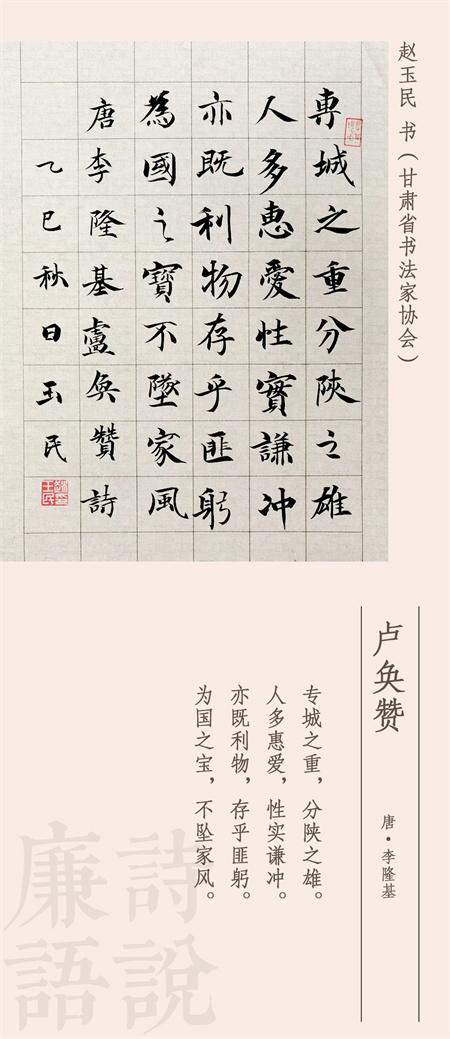 赵玉民 书（甘肃省书法家协会）
專城之重分陝之雄
人多惠愛性實謙冲
亦既利物存乎匪躬
為國之寶不墜家風
唐李隆基盧奐贊詩
乙巳秋日玉民
卢奂赞
唐·李隆基
专城之重，分陕之雄。
人多惠爱，性实谦冲。
亦既利物，存乎匪躬。
为国之宝，不坠家风。
詩說
廉語